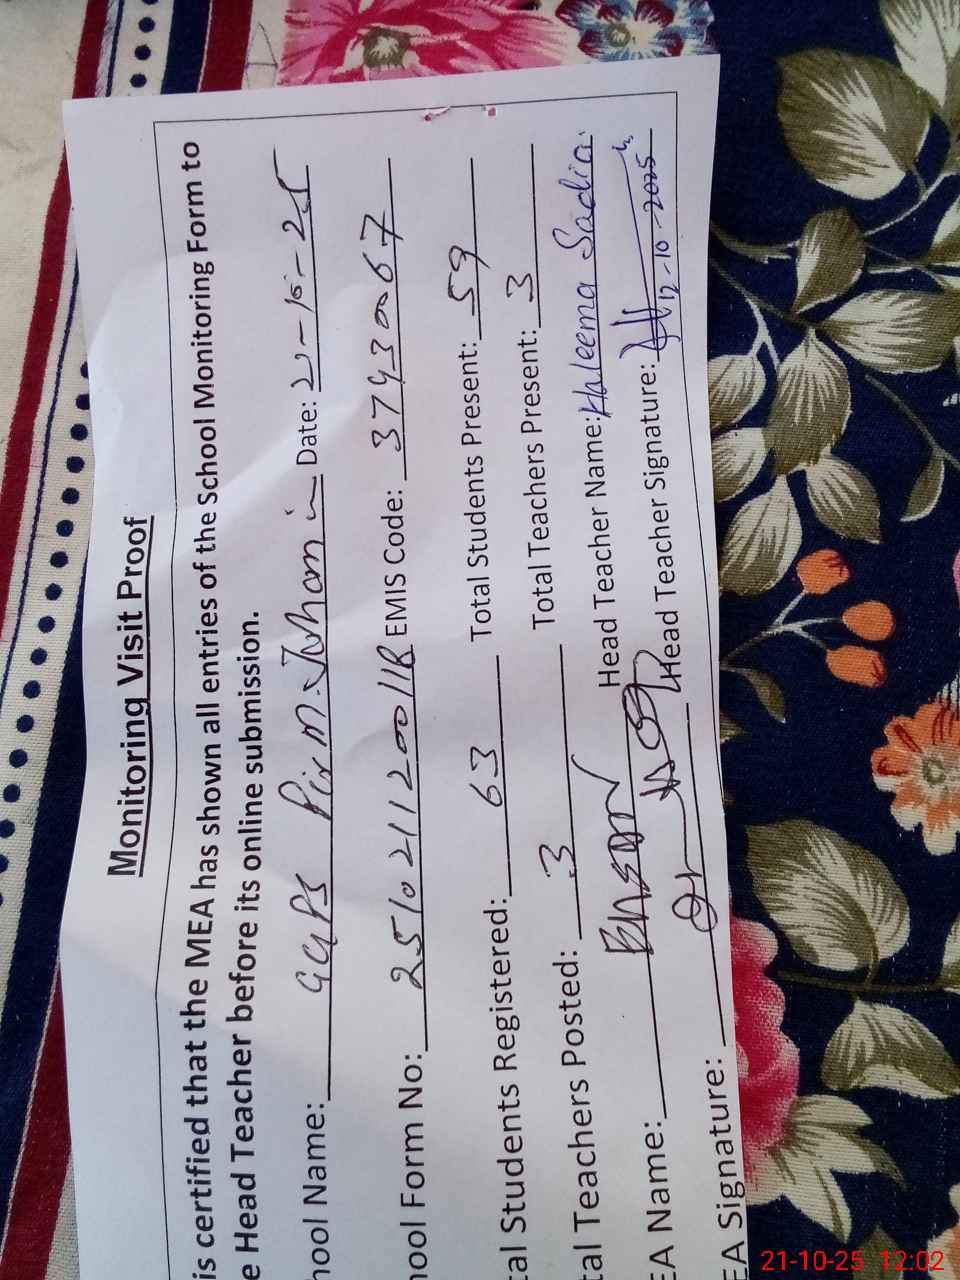 Monitoring Visit Proof
is certified that the MEA has shown all entries of the School Monitoring Form to
e Head Teacher before its online submission.
hool Name: GGPS Pir M. Juhania Date: 21-10-25
hool Form No: 25102111200118 EMIS Code: 37430067
tal Students Registered: 63 Total Students Present: 59
tal Teachers Posted: 3 Total Teachers Present: 3
EA Name: Head Teacher Name: Haleema Sadia
EA Signature: Head Teacher Signature:
12-10-2025
21-10-25 12:02